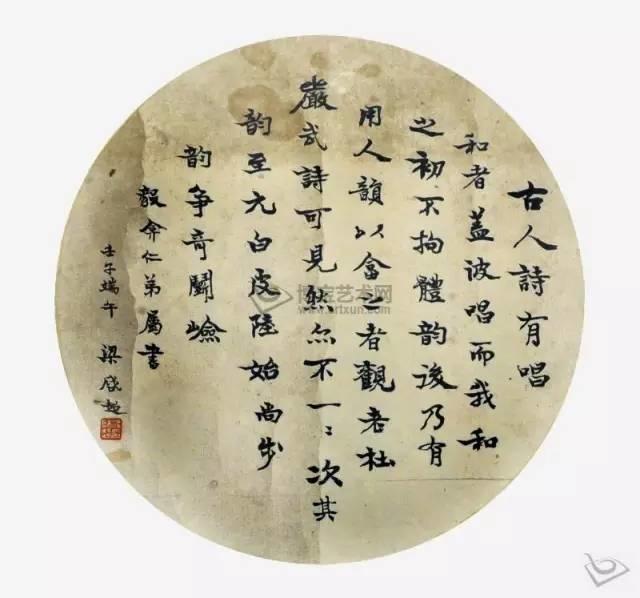 古人詩有唱
和者蓋波唱而我和
之初不拘體韵後乃有
用人韻以畣之者觀老杜
嚴武詩可見然亦不一二次其
韵至元白皮陸始尚步
韵爭奇鬭嶮
毅弇仁弟屬書
壬子端午 梁啟超
博宝艺术网
www.artxun.com